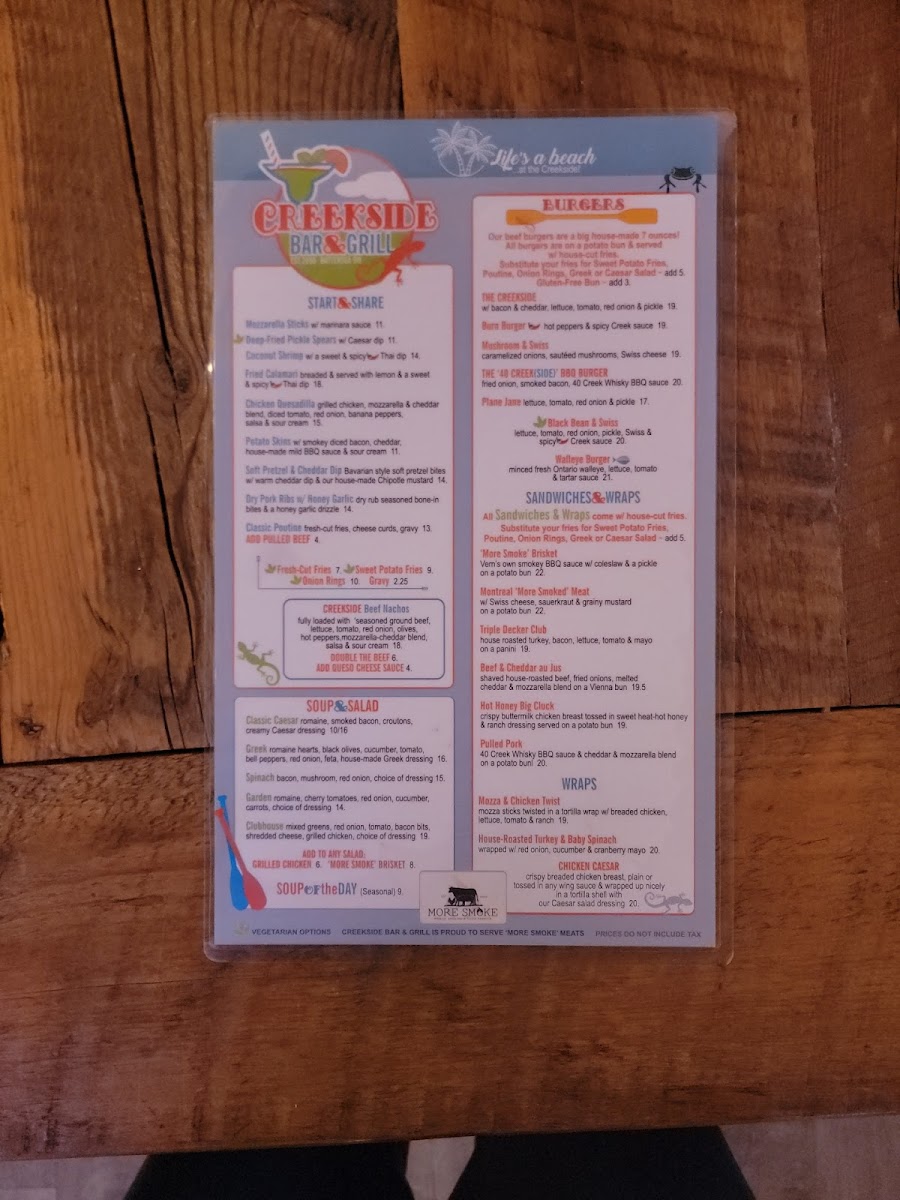 Life's a beach
at the Creekside!
CREEKSIDE
BAR&GRILL
START&SHARE
Mozzarella Sticks w/ marinara sauce 11.
Deep-Fried Pickle Spears w/ Caesar dip 11.
Coconut Shrimp w/ a sweet & spicy Thai dip 14.
Fried Calamari breaded & served with lemon & a sweet
& spicy Thai dip 18.
Chicken Quesadilla grilled chicken, mozzarella & cheddar
blend, diced tomato, red onion, banana peppers,
salsa & sour cream 15.
Potato Skins w/ smokey diced bacon, cheddar,
house-made mild BBQ sauce & sour cream 11.
Soft Pretzel & Cheddar Dip Bavarian style soft pretzel bites
w/ warm cheddar dip & our house-made Chipotle mustard 14.
Dry Pork Ribs w/ Honey Garlic dry rub seasoned bone-in
bites & a honey garlic drizzle 14.
Classic Poutine fresh-cut fries, cheese curds, gravy 13.
ADD PULLED BEEF 4.
Fresh-Cut Fries 7. Sweet Potato Fries 9.
Onion Rings 10. Gravy 2.25
CREEKSIDE Beef Nachos
fully loaded with 'seasoned ground beef,
lettuce, tomato, red onion, olives,
hot peppers,mozzarella-cheddar blend,
salsa & sour cream 18.
DOUBLE THE BEEF 6.
ADD QUESO CHEESE SAUCE 4.
SOUP&SALAD
Classic Caesar romaine, smoked bacon, croutons,
creamy Caesar dressing 10/16
Greek romaine hearts, black olives, cucumber, tomato,
bell peppers, red onion, feta, house-made Greek dressing 16.
Spinach bacon, mushroom, red onion, choice of dressing 15.
Garden romaine, cherry tomatoes, red onion, cucumber,
carrots, choice of dressing 14.
Clubhouse mixed greens, red onion, tomato, bacon bits,
shredded cheese, grilled chicken, choice of dressing 19.
ADD TO ANY SALAD:
GRILLED CHICKEN 6. 'MORE SMOKE' BRISKET 8.
SOUP OF the DAY (Seasonal) 9.
BURGERS
Our beef burgers are a big house-made 7 ounces!
All burgers are on a potato bun & served
w/ house-cut fries.
Substitute your fries for Sweet Potato Fries,
Poutine, Onion Rings, Greek or Caesar Salad - add 5.
Gluten-Free Bun - add 3.
THE CREEKSIDE
w/ bacon & cheddar, lettuce, tomato, red onion & pickle 19.
Burn Burger hot peppers & spicy Creek sauce 19.
Mushroom & Swiss
caramelized onions, sautéed mushrooms, Swiss cheese 19.
THE '40 CREEK(SIDE)' BBQ BURGER
fried onion, smoked bacon, 40 Creek Whisky BBQ sauce 20.
Plane Jane lettuce, tomato, red onion & pickle 17.
Black Bean & Swiss
lettuce, tomato, red onion, pickle, Swiss &
spicy Creek sauce 20.
Walleye Burger
minced fresh Ontario walleye, lettuce, tomato
& tartar sauce 21.
SANDWICHES&WRAPS
All Sandwiches & Wraps come w/ house-cut fries.
Substitute your fries for Sweet Potato Fries,
Poutine, Onion Rings, Greek or Caesar Salad - add 5.
'More Smoke' Brisket
Vern's own smokey BBQ sauce w/ coleslaw & a pickle
on a potato bun 22.
Montreal 'More Smoked' Meat
w/ Swiss cheese, sauerkraut & grainy mustard
on a potato bun 22.
Triple Decker Club
house roasted turkey, bacon, lettuce, tomato & mayo
on a panini 19.
Beef & Cheddar au Jus
shaved house-roasted beef, fried onions, melted
cheddar & mozzarella blend on a Vienna bun 19.5
Hot Honey Big Cluck
crispy buttermilk chicken breast tossed in sweet heat-hot honey
& ranch dressing served on a potato bun 19.
Pulled Pork
40 Creek Whisky BBQ sauce & cheddar & mozzarella blend
on a potato bun! 20.
WRAPS
Mozza & Chicken Twist
mozza sticks twisted in a tortilla wrap w/ breaded chicken,
lettuce, tomato & ranch 19.
House-Roasted Turkey & Baby Spinach
wrapped w/ red onion, cucumber & cranberry mayo 20.
CHICKEN CAESAR
crispy breaded chicken breast, plain or
tossed in any wing sauce & wrapped up nicely
in a tortilla shell with
our Caesar salad dressing 20.
MORE SMOKE
VEGETARIAN OPTIONS CREEKSIDE BAR & GRILL IS PROUD TO SERVE 'MORE SMOKE' MEATS PRICES DO NOT INCLUDE TAX